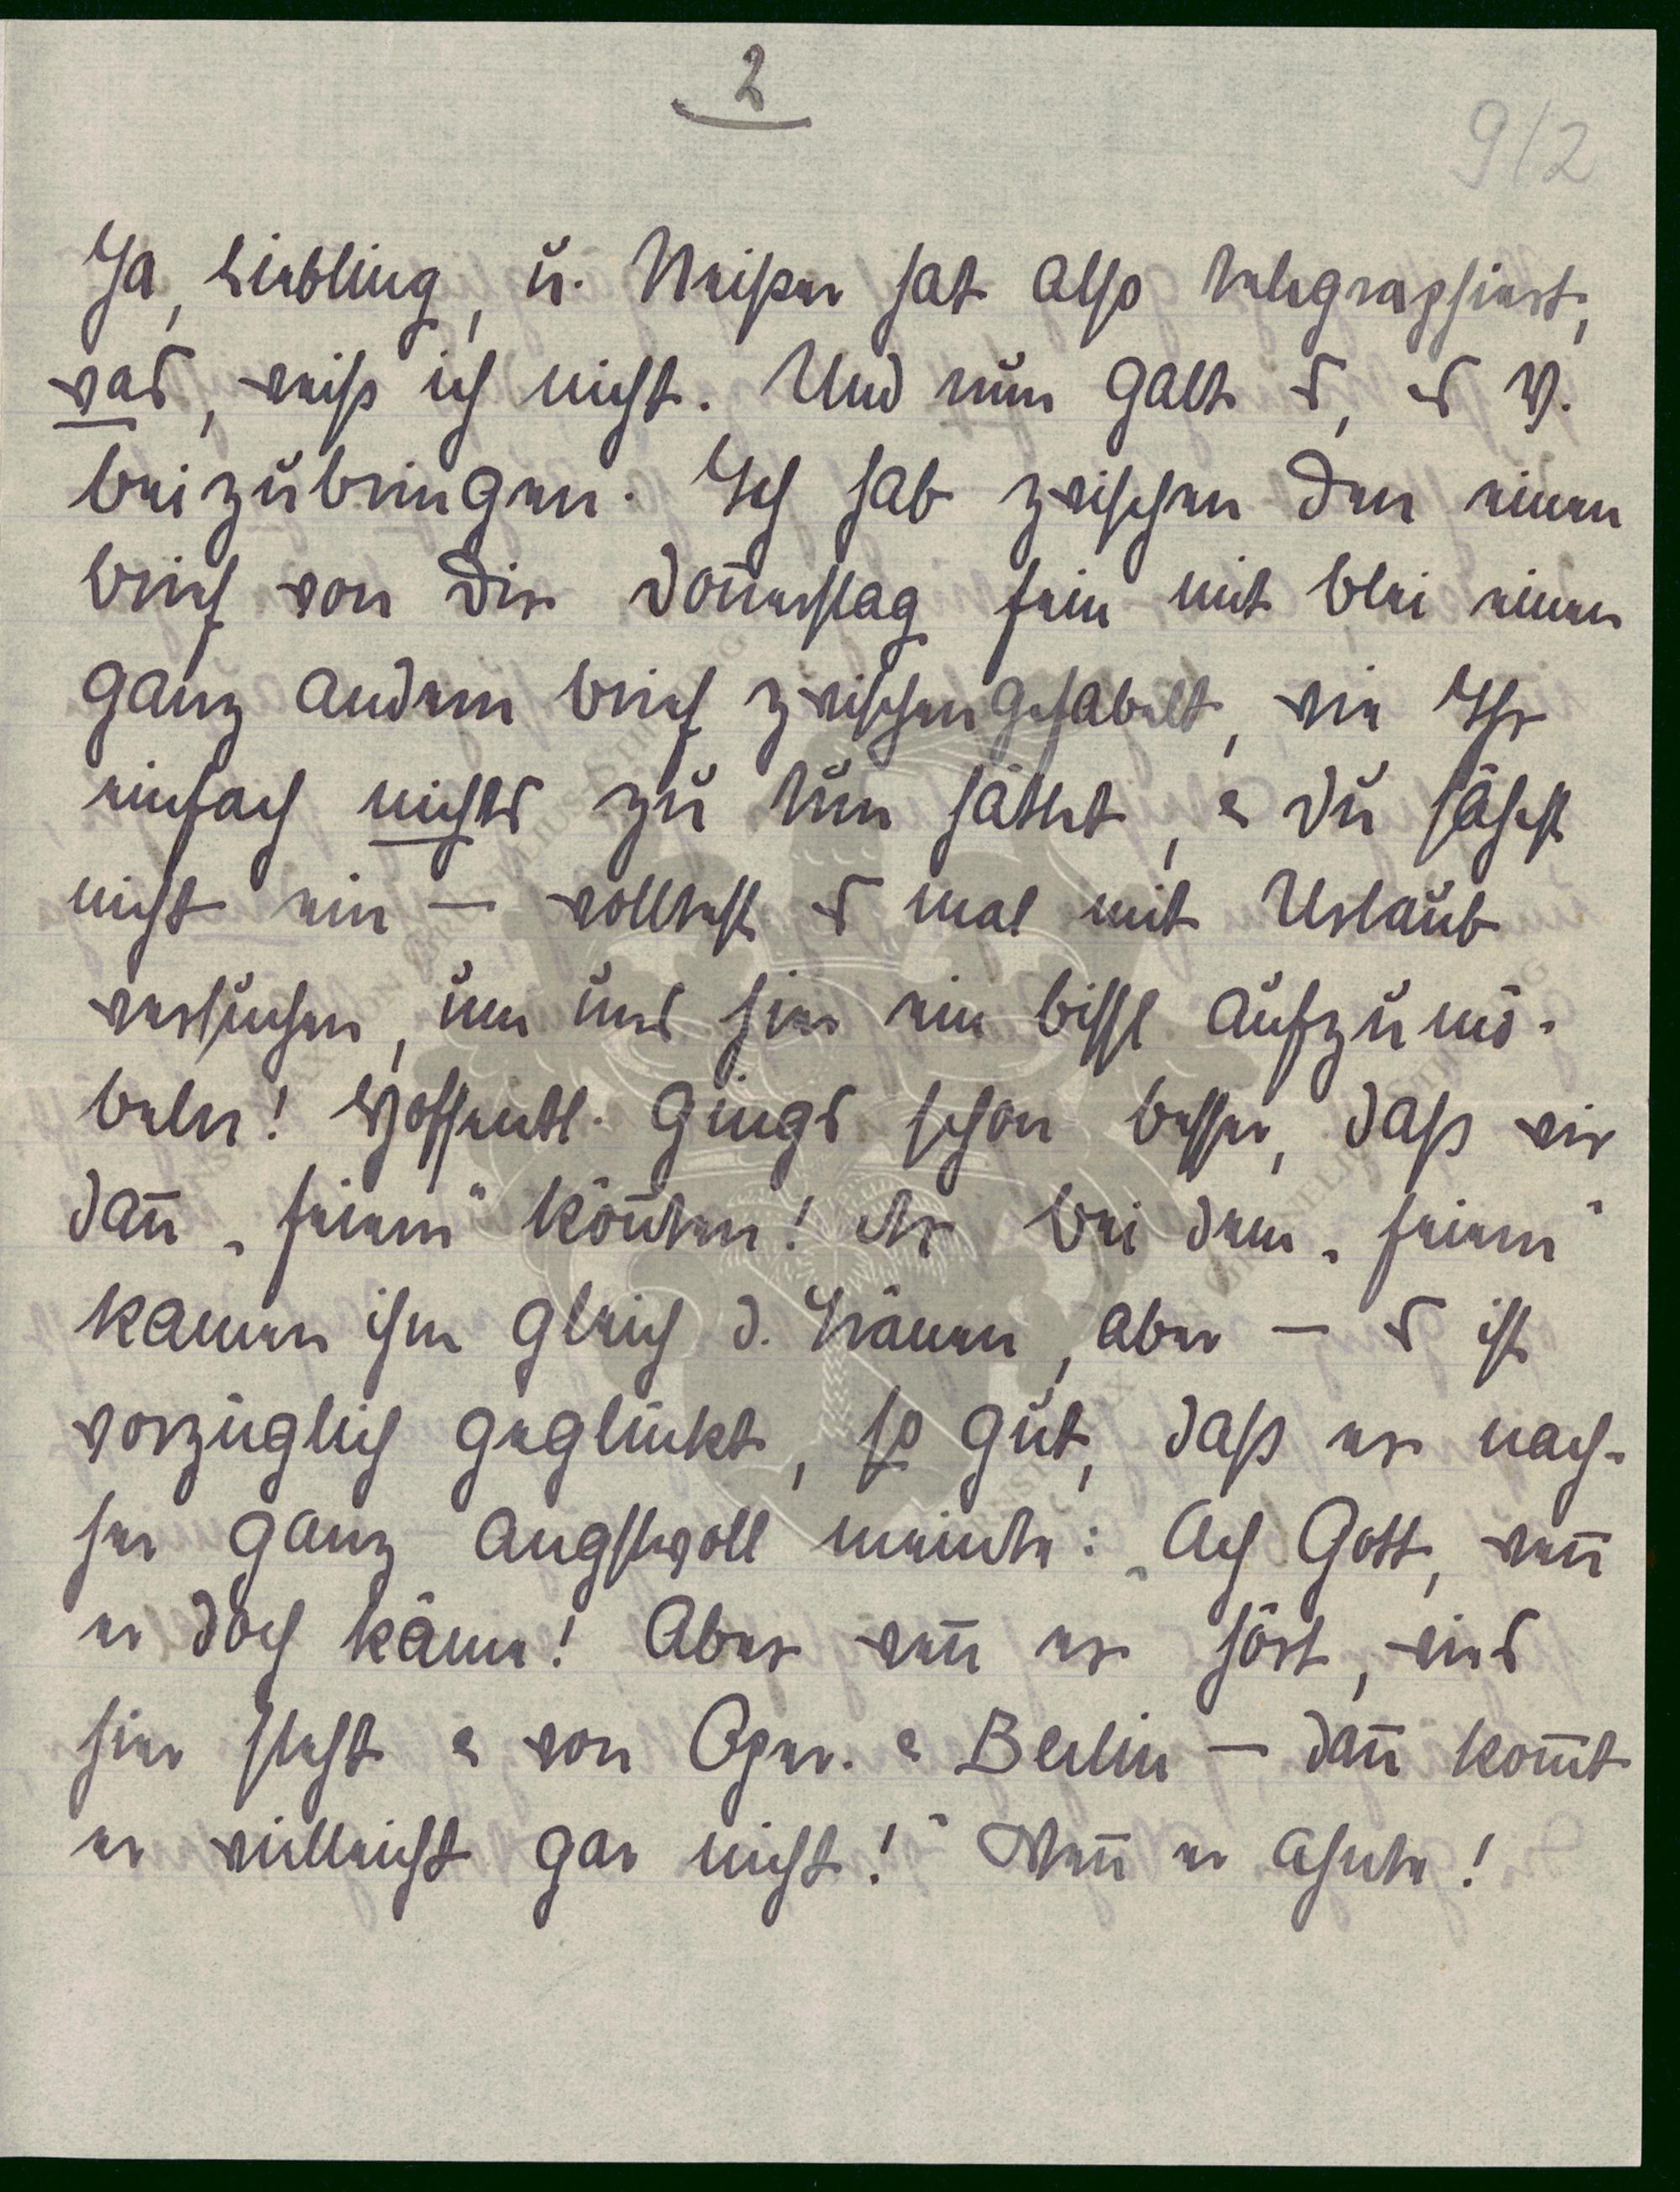 2
9/2
Ja, Liebling, u. Neißer hat also telegraphiert,
was, weiß ich nicht. Und nun galt es, es V.
beizubringen. Ich hab zwischen den einen
Brief von Dir Donnerstag fein mit Blei einen
ganz andern Brief zwischengefabelt, wie Ihr
einfach nichts zu tun hättet, & Du sähest
nicht ein — wolltest es mal mit Urlaub
versuchen, um uns hier ein bissl aufzumö-
beln! Hoffentl. gings schon besser, daß wir
dann „feiern“ könnten! Er bei dem „feiern“
kamen ihm gleich d. Tränen, aber — es ist
vorzüglich geglückt, so gut, daß er nach-
her ganz angstvoll meinte: „Ach Gott, wenn
er doch käme! Aber wenn er hört, wies
hier steht & von Oper. & Berlin — dann kommt
er vielleicht gar nicht!“ Wenn er ahnte!